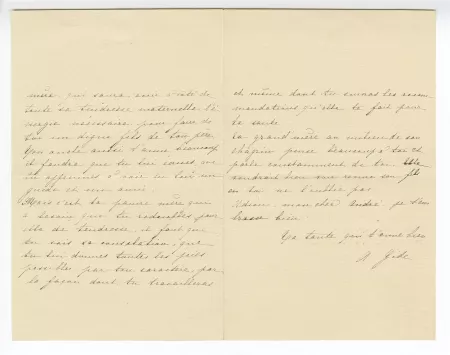 mère qui saura, avoir à côté de
toute sa tendresse maternelle l'é
nergie nécessaire pour faire de
toi un digne fils de ton père
Ton oncle aussi t'aime beaucoup
il faudra que tu lui causes, que
tu apprennes à voir en lui un
guide et un ami.
Mais c'est ta pauvre mère qui
a besoin que tu redoubles pour
elle de tendresse, il faut que
tu sois sa consolation, que
tu lui donnes toutes les joies
possibles par ton caractère, par
la façon dont tu travailleras
et même dont tu suivras les recom
mandations qu'elle te fait pour
ta santé.
Ta grand'mère au milieu de son
chagrin pense beaucoup à toi et
parle constamment de toi
voudrait bien que comme son fils
tu ne l'oublies pas
Adieu, mon cher André, je t'em
brasse bien.
Ta tante qui t'aime bien
Gide